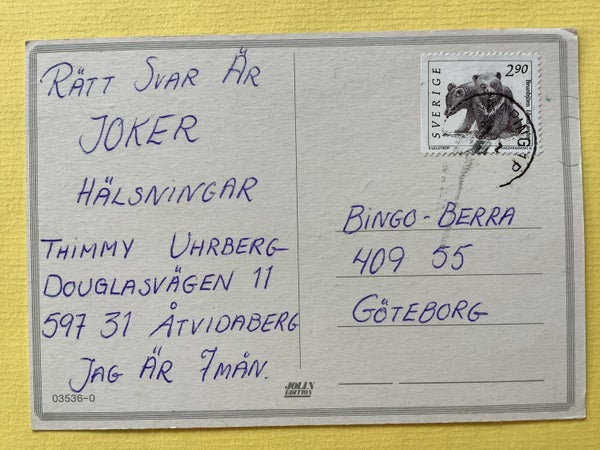 RÄTT SVAR ÄR
JOKER
HÄLSNINGAR
THIMMY UHRBERG
DOUGLASVÄGEN 11
597 31 ÅTVIDABERG
JAG ÄR 7 MÅN.
03536-0
JOLIN
EDITION
SVERIGE
2.90
Brunbjörn
BINGO-BERRA
409 55
GÖTEBORG